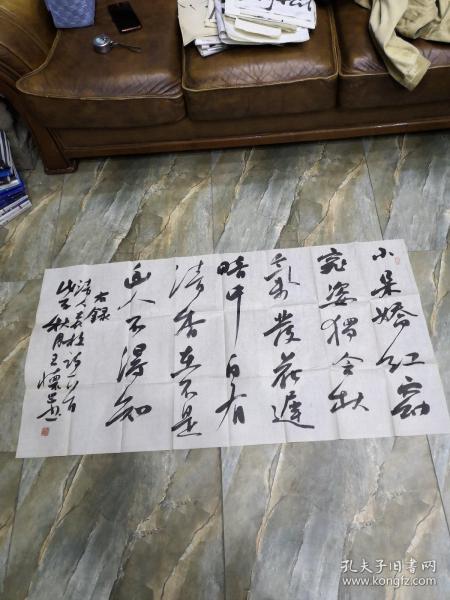 小朵娇红窈
窕姿独含秋
气发花迟
暗中自有
清香在不是
幽人不得知
右录
清人袁枚诗一首
王
孔夫子旧书网
www.kongfz.com